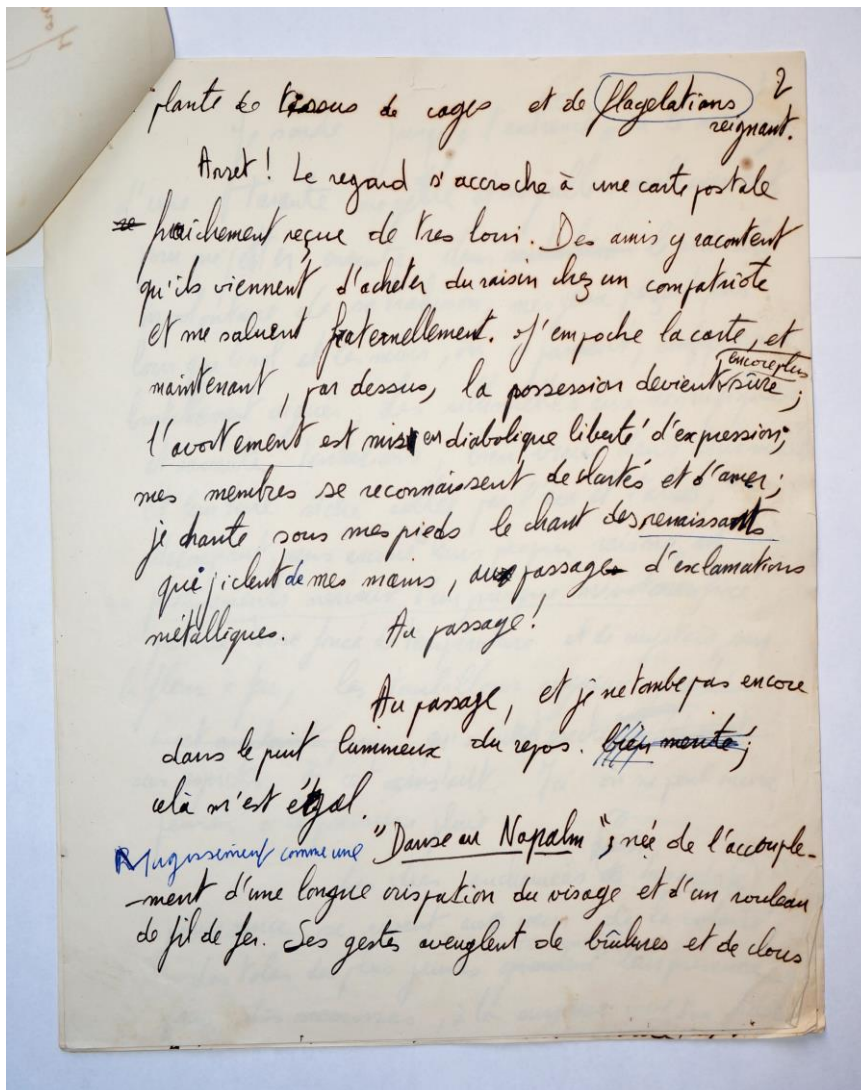 2
plante de tissus de cages et de flagelations
reignant.
Arret ! Le regard s'accroche à une carte postale
fraichement reçue de tres loin. Des amis y racontent
qu'ils viennent d'acheter du raisin chez un compatriote
et me saluent fraternellement. J'empoche la carte, et
maintenant, par dessus, la possession devient encore plus sûre ;
l'avortement est mis en diabolique liberté d'expression ;
mes membres se reconnaissent de clartés et d'amer ;
je chante sous mes pieds le chant des renaissants
qui jiclent de mes mains, au passage d'exclamations
métalliques. Au passage !
Au passage, et je ne tombe pas encore
dans le puit lumineux du repos. bien merité ;
celà m'est égal.
Mugissement comme une "Danse au Napalm" ; née de l'accouple-
-ment d'une longue crispation du visage et d'un rouleau
de fil de fer. Ses gestes aveuglent de brûlures et de clous